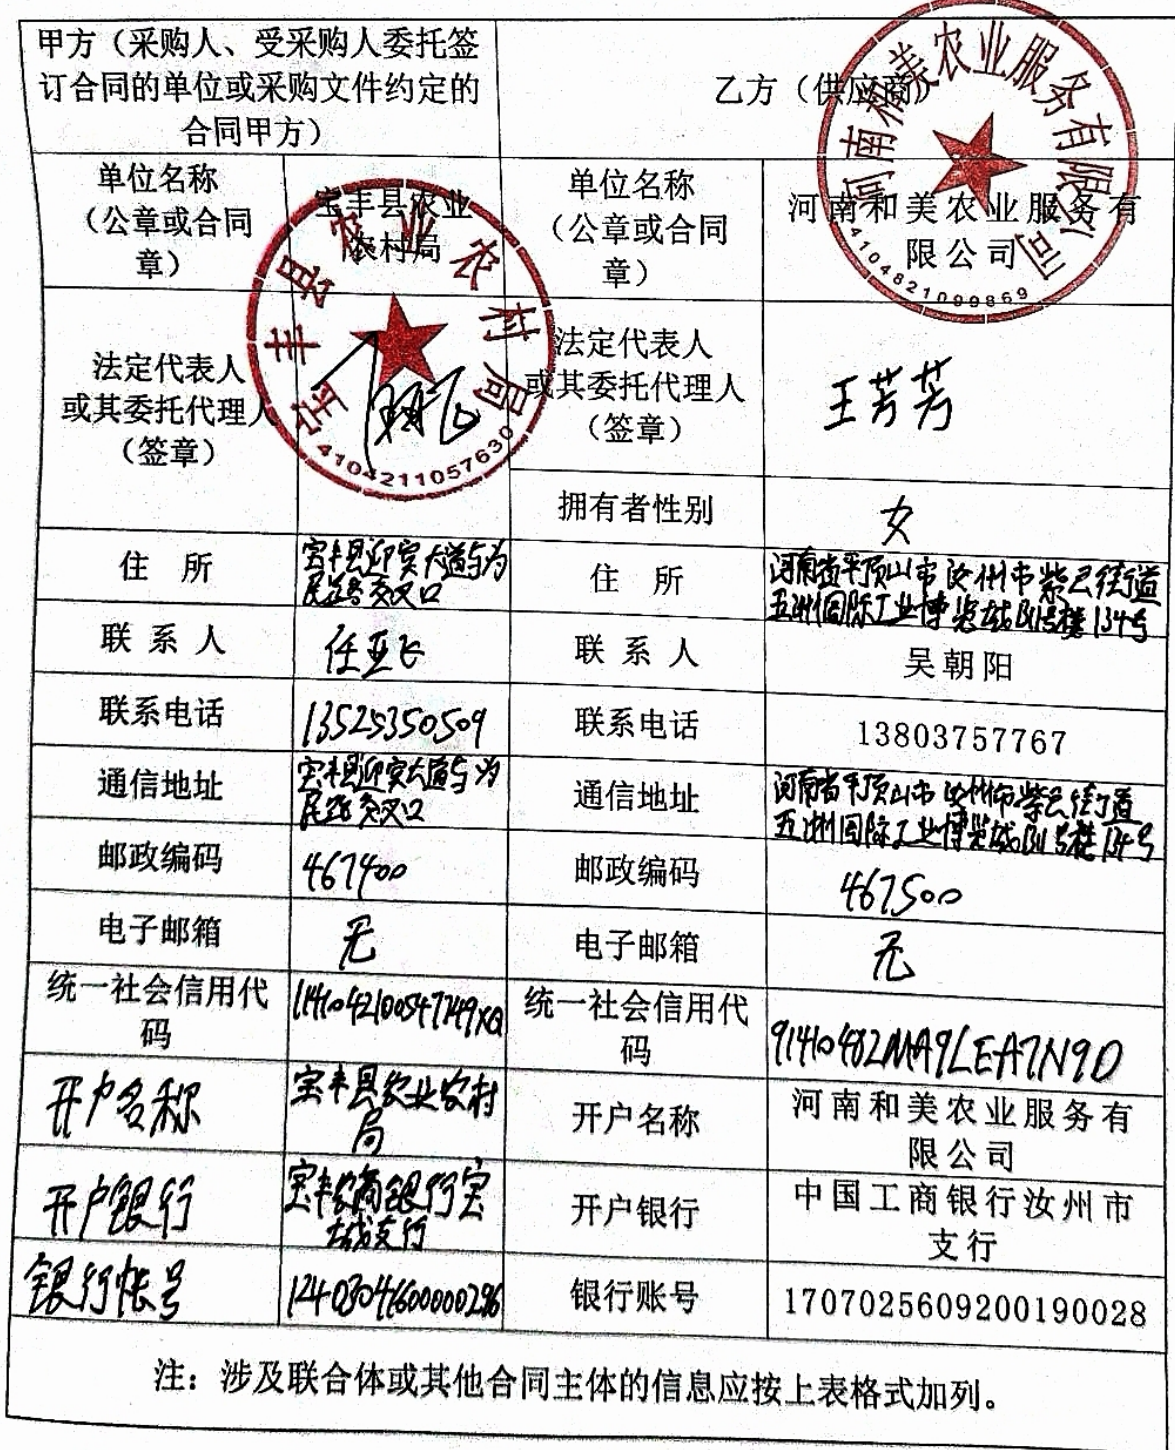 甲方（采购人、受采购人委托签
订合同的单位或采购文件约定的
合同甲方）
乙方（供应商）
单位名称
（公章或合同
章）
宝丰县农业
农村局
单位名称
（公章或合同
章）
河南和美农业服务有
限公司
宝丰县农业农村局
4104211057630
河南和美农业服务有限公司
4104821099869
法定代表人
或其委托代理人
（签章）
法定代表人
或其委托代理人
（签章）
王芳芳
拥有者性别
女
住 所
宝丰县迎宾大道与为
民路交叉口
住 所
河南省平顶山市汝州市紫云街道
五洲国际工业博览城B1号楼134号
联系人
任亚飞
联系人
吴朝阳
联系电话
13525350509
联系电话
13803757767
通信地址
宝丰县迎宾大道与为
民路交叉口
通信地址
河南省平顶山市汝州市紫云街道
五洲国际工业博览城B1号楼134号
邮政编码
467400
邮政编码
467500
电子邮箱
无
电子邮箱
无
统一社会信用代
码
11410421005477149XQ
统一社会信用代
码
91410482MA9LEA7N9D
开户名称
宝丰县农业农村
局
开户名称
河南和美农业服务有
限公司
开户银行
宝丰农商银行宝
城支行
开户银行
中国工商银行汝州市
支行
银行帐号
12403046600000296
银行账号
1707025609200190028
注：涉及联合体或其他合同主体的信息应按上表格式加列。